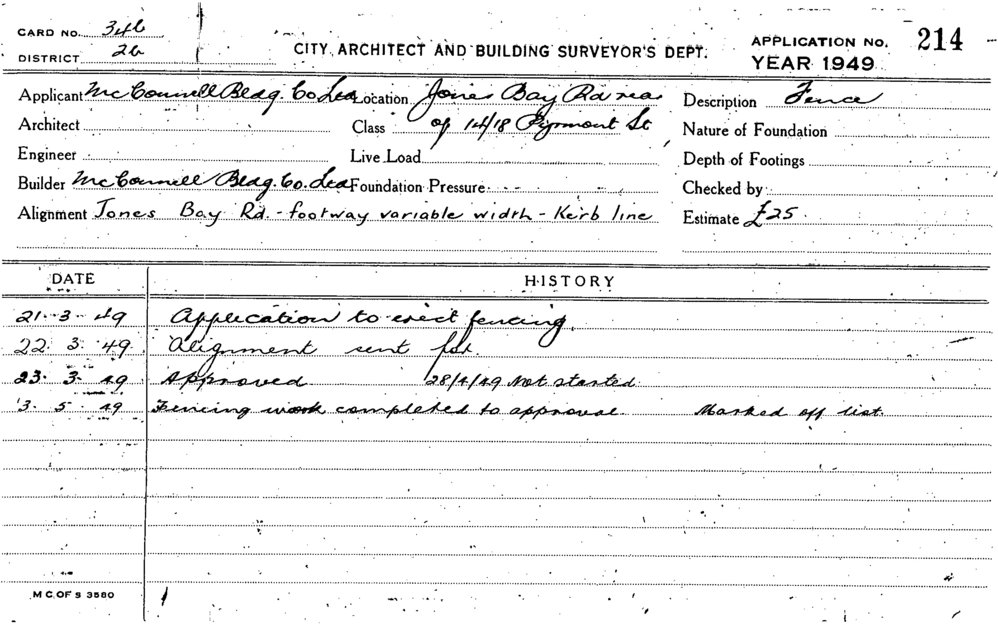 CARD NO. 34b
DISTRICT 2b
CITY ARCHITECT AND BUILDING SURVEYOR'S DEPT.
APPLICATION NO. 214
YEAR 1949
Applicant McConnell Bldg. Co Ltd Location Jones Bay Rd rear Description Fence
Architect Class of 14/18 Pyrmont St Nature of Foundation
Engineer Live Load Depth of Footings
Builder McConnell Bldg. Co. Ltd Foundation Pressure Checked by
Alignment Jones Bay Rd. - footway variable width - Kerb line Estimate £25
DATE HISTORY
21·3·49 Application to erect fencing.
22·3·49 Alignment sent
23·3·49 Approved 28/4/49 Not started
3·5·49 Fencing work completed to approval. Marked off list.
M C. OF S 3580